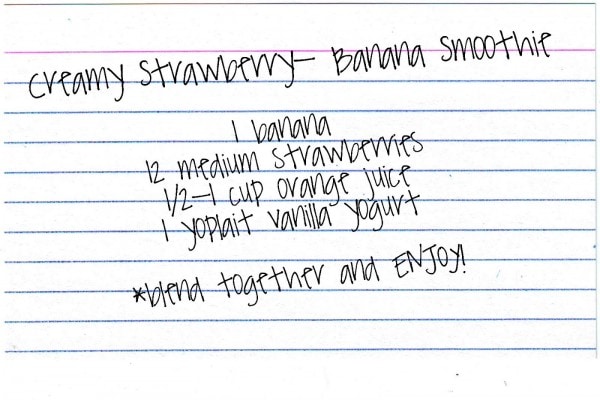 creamy strawberry- Banana smoothie
1 banana
12 medium strawberries
1/2-1 cup orange juice
1 yoplait vanilla yogurt
*blend together and ENJOY!